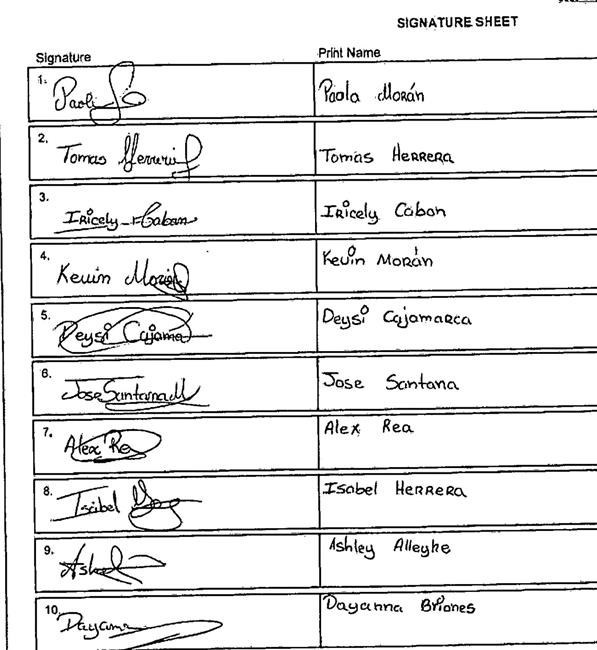 SIGNATURE SHEET
Signature Print Name
1. Paola Morán
2. Tomas Herrera Tomas HERRERA
3. Iricely Cabon Iricely Cabon
4. Kevin Morán Kevin MORÁN
5. Deysi Cajama Deysi Cajamarca
6. Jose Santana M Jose Santana
7. Alex Rea Alex Rea
8. Isabel Isabel HERRERA
9. Ashley Alleyke
10. Dayanna Dayanna Briones